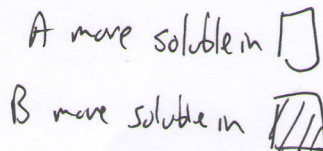 A more soluble in
B more soluble in